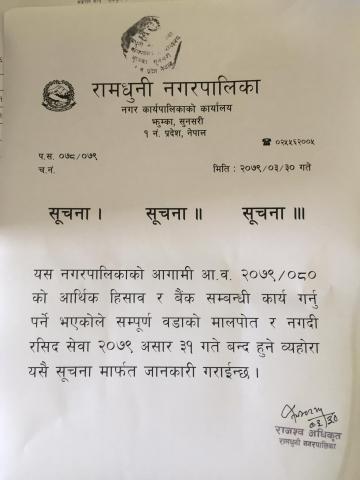 रामधुनी नगरपालिका
नगर कार्यपालिकाको कार्यालय
झुम्का, सुनसरी
१ नं. प्रदेश, नेपाल
☎ ०२५५६२००५
प.स. ०७८/०७९
च.नं.
मिति : २०७९/०३/३० गते
सूचना । सूचना ॥ सूचना ॥।
यस नगरपालिकाको आगामी आ.व. २०७९/०८०
को आर्थिक हिसाव र बैंक सम्बन्धी कार्य गर्नु
पर्ने भएकोले सम्पूर्ण वडाको मालपोत र नगदी
रसिद सेवा २०७९ असार ३१ गते बन्द हुने व्यहोरा
यसै सूचना मार्फत जानकारी गराईन्छ ।
०३/३०
राजश्व अधिकृत
रामधुनी नगरपालिका